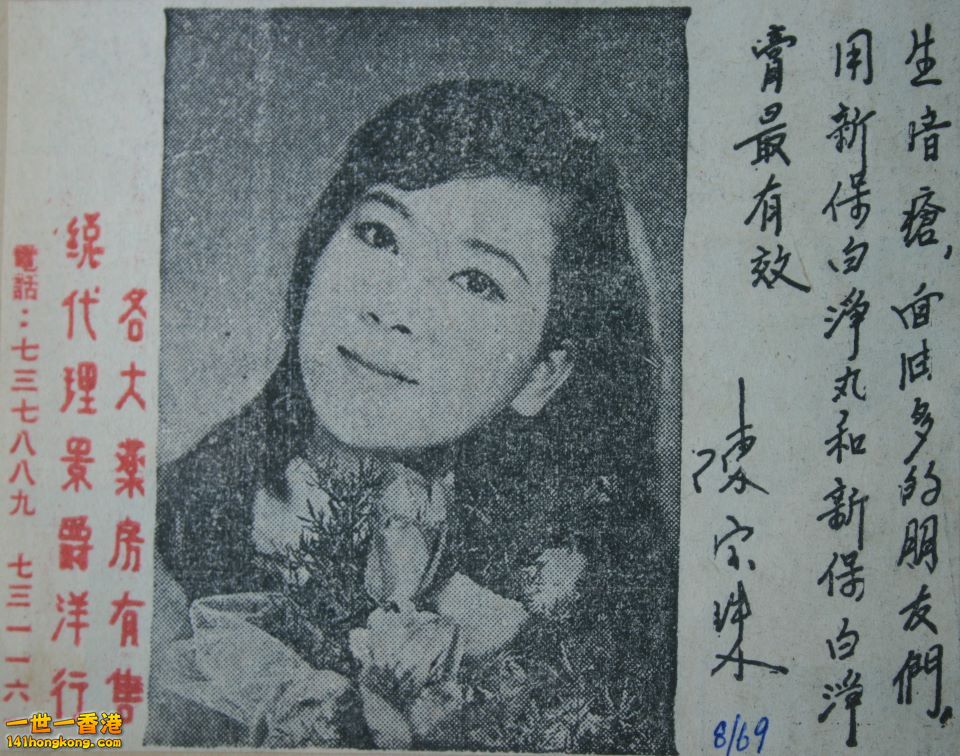 生暗瘡，面油多的朋友們，
用新保白淨丸和新保白淨
膏最有效
陳
8/69
各大薬房有售
緫代理景爵洋行
電話：七三七八八九 七三一一一六
一世一香港
141hongkong.com